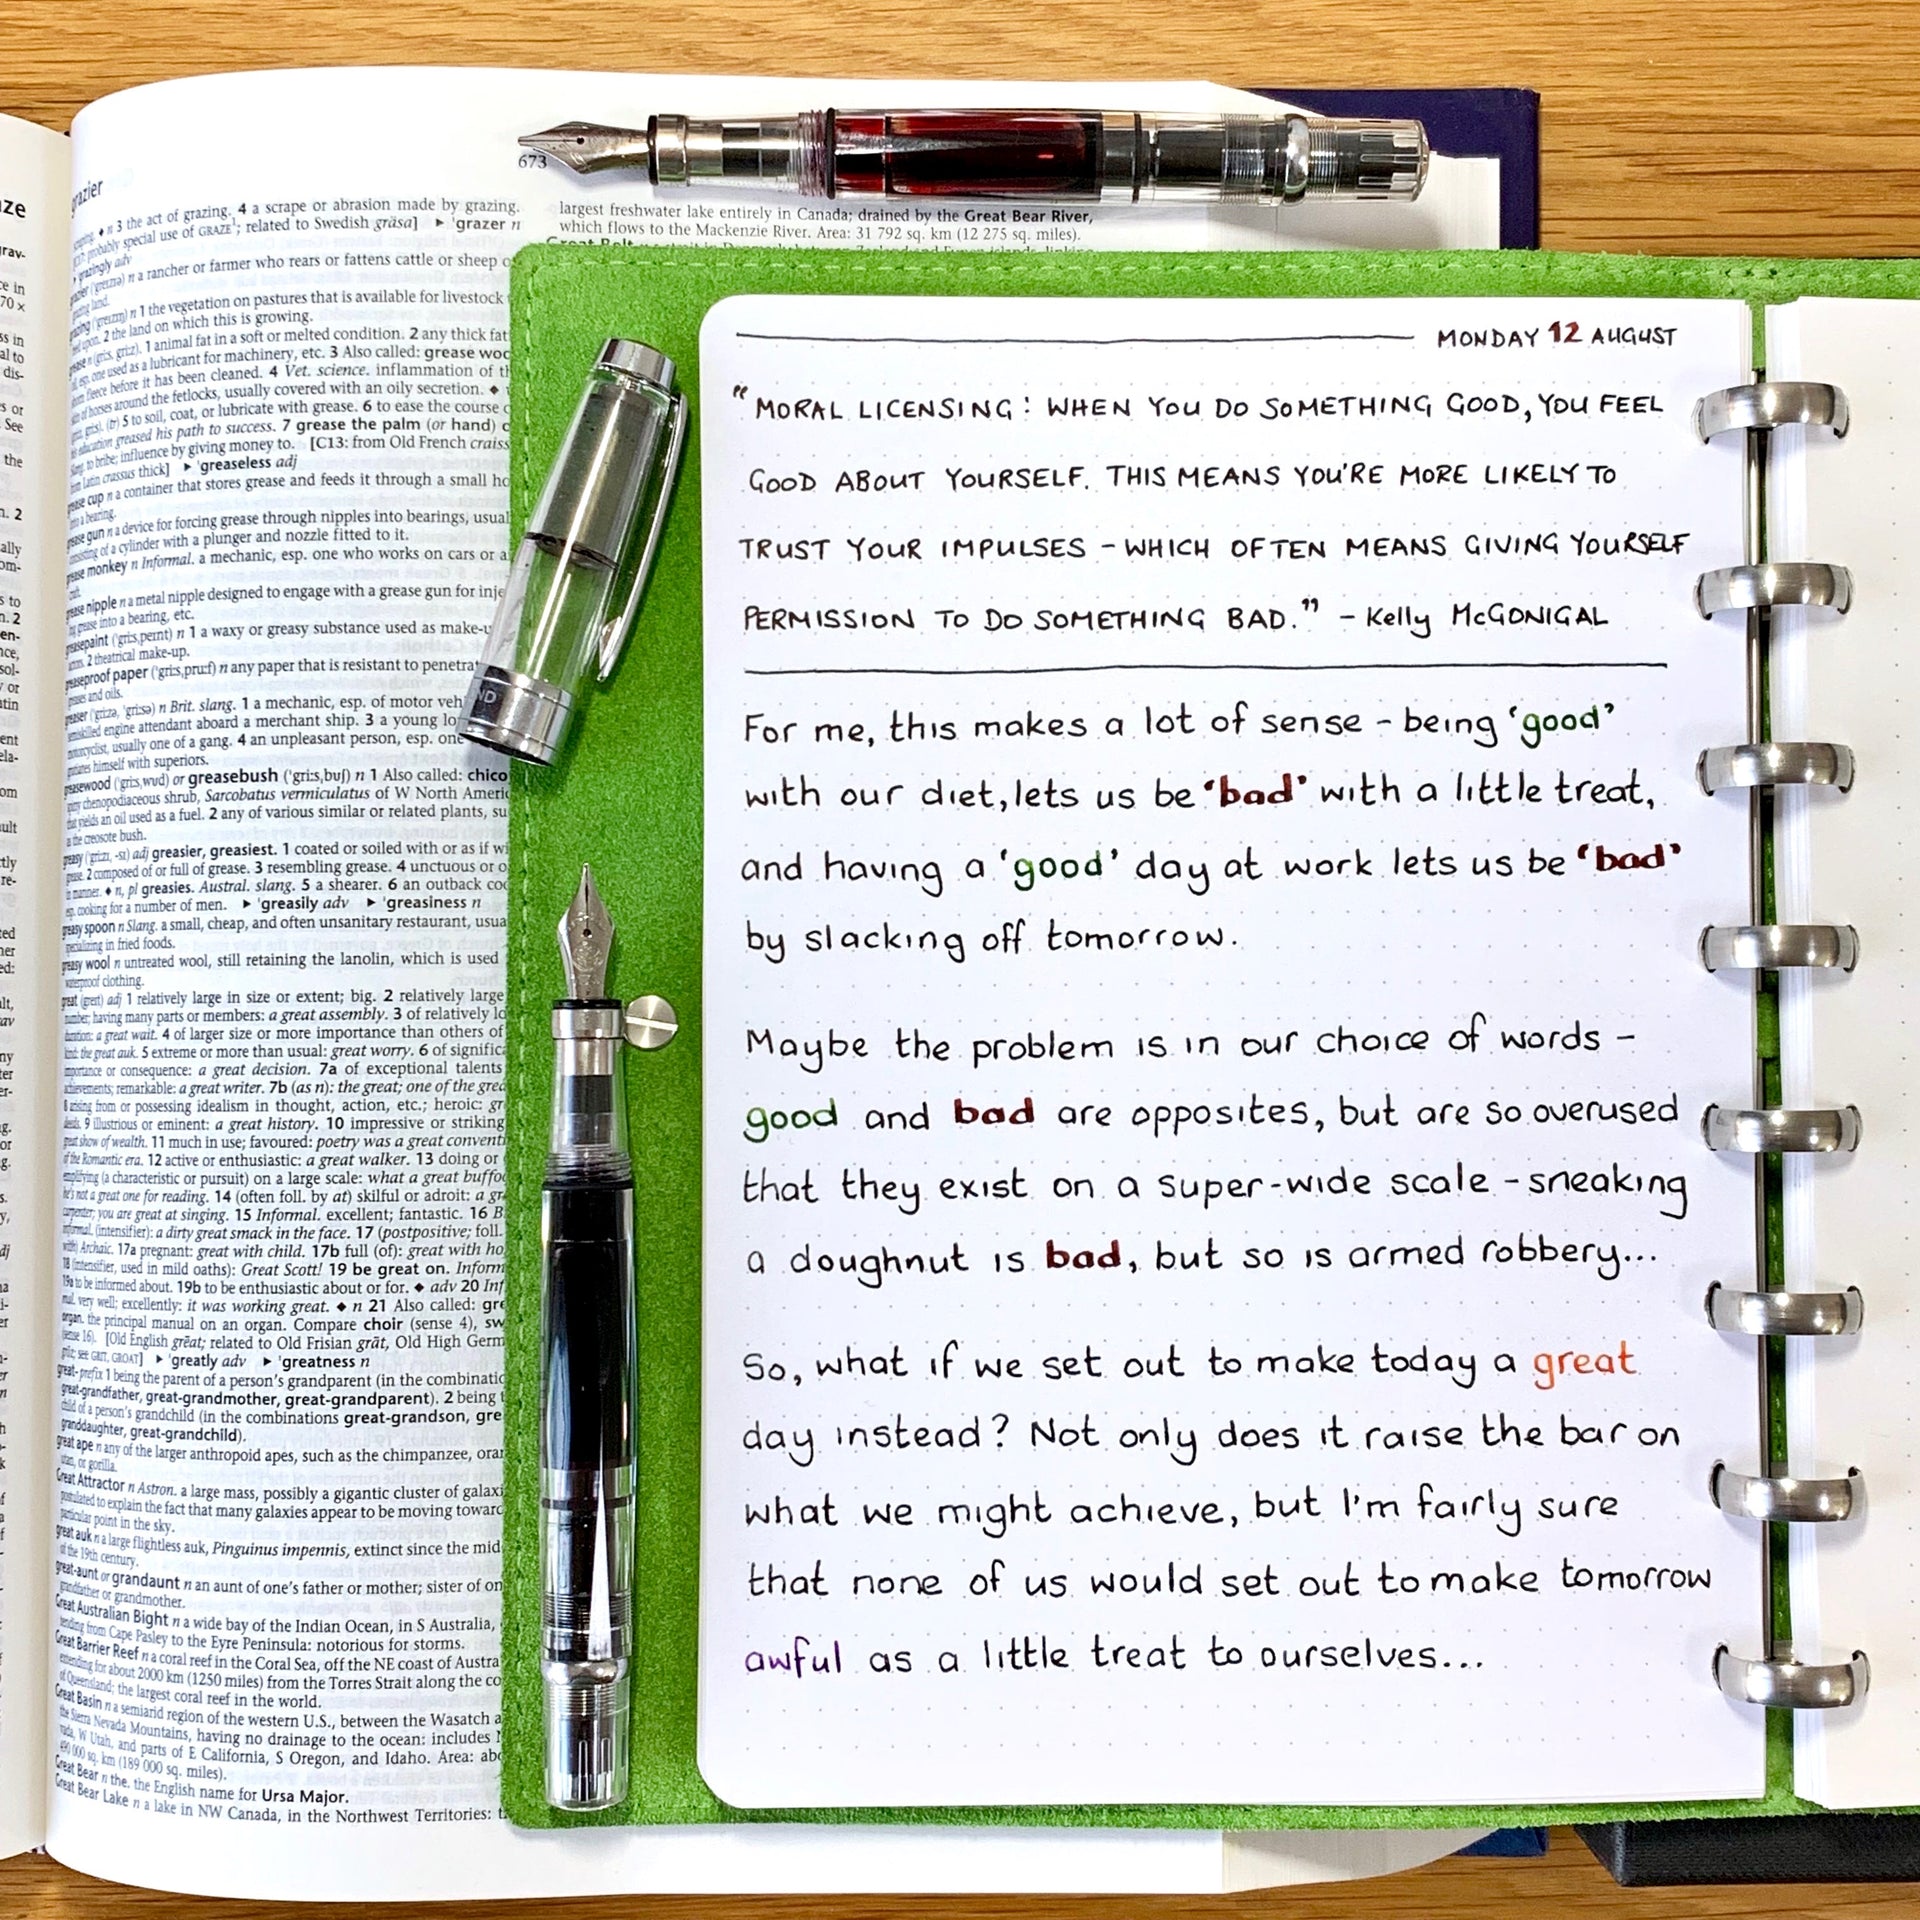 673
grazier
n 3 the act of grazing. 4 a scrape or abrasion made by grazing.
probably special use of GRAZE¹; related to Swedish gräsa] ▸ 'grazer n
grazingly adv
n a rancher or farmer who rears or fattens cattle or sheep
n 1 the vegetation on pastures that is available for livestock
2 the land on which this is growing.
1 animal fat in a soft or melted condition. 2 any thick fat
used as a lubricant for machinery, etc. 3 Also called: grease
fleece before it has been cleaned. 4 Vet. science. inflammation of
of horses around the fetlocks, usually covered with an oily secretion. ◆
5 to soil, coat, or lubricate with grease. 6 to ease the course
education greased his path to success. 7 grease the palm (or hand)
to bribe; influence by giving money to. [C13: from Old French
from Latin crassus thick] ▸ 'greaseless adj
grease cup n a container that stores grease and feeds it through a small
grease gun n a device for forcing grease through nipples into bearings,
consisting of a cylinder with a plunger and nozzle fitted to it.
grease monkey n Informal. a mechanic, esp. one who works on cars or
grease nipple n a metal nipple designed to engage with a grease gun for
grease into a bearing, etc.
greasepaint n 1 a waxy or greasy substance used as
2 theatrical make-up.
greaseproof paper n any paper that is resistant to
and oils.
greaser n Brit. slang. 1 a mechanic, esp. of motor
semiskilled engine attendant aboard a merchant ship. 3 a young
motorcyclist, usually one of a gang. 4 an unpleasant person, esp. one
himself with superiors.
greasewood or greasebush n 1 Also called: chico
chenopodiaceous shrub, Sarcobatus vermiculatus of W North
that yields an oil used as a fuel. 2 any of various similar or related plants,
as the creosote bush.
greasy adj greasier, greasiest. 1 coated or soiled with or as if
grease. 2 composed of or full of grease. 3 resembling grease. 4 unctuous or
in manner. ◆ n, pl greasies. Austral. slang. 5 a shearer. 6 an outback
esp. cooking for a number of men. ▸ 'greasily adv ▸ 'greasiness n
greasy spoon n Slang. a small, cheap, and often unsanitary restaurant,
specializing in fried foods.
greasy wool n untreated wool, still retaining the lanolin, which is used
waterproof clothing.
great adj 1 relatively large in size or extent; big. 2 relatively large
number; having many parts or members: a great assembly. 3 of relatively
duration: a great wait. 4 of larger size or more importance than others of
kind: the great auk. 5 extreme or more than usual: great worry. 6 of
importance or consequence: a great decision. 7a of exceptional talents
achievements; remarkable: a great writer. 7b (as n): the great; one of the
8 arising from or possessing idealism in thought, action, etc.; heroic:
deeds. 9 illustrious or eminent: a great history. 10 impressive or striking
great show of wealth. 11 much in use; favoured: poetry was a great
of the Romantic era. 12 active or enthusiastic: a great walker. 13 doing or
exemplifying (a characteristic or pursuit) on a large scale: what a great
he's not a great one for reading. 14 (often foll. by at) skilful or adroit: a
carpenter; you are great at singing. 15 Informal. excellent; fantastic. 16
informal. (intensifier): a dirty great smack in the face. 17 (postpositive; foll.
with) Archaic. 17a pregnant: great with child. 17b full (of): great with
18 (intensifier, used in mild oaths): Great Scott! 19 be great on.
19a to be informed about. 19b to be enthusiastic about or for. ◆ adv 20
very well; excellently: it was working great. ◆ n 21 Also called:
organ. the principal manual on an organ. Compare choir (sense 4),
(sense 16). [Old English grēat; related to Old Frisian grāt, Old High
see GRIT, GROAT] ▸ 'greatly adv ▸ 'greatness n
great- prefix 1 being the parent of a person's grandparent (in the
great-grandfather, great-grandmother, great-grandparent). 2 being
child of a person's grandchild (in the combinations great-grandson,
granddaughter, great-grandchild).
great ape n any of the larger anthropoid apes, such as the chimpanzee,
or gorilla.
Great Attractor n Astron. a large mass, possibly a gigantic cluster of
postulated to explain the fact that many galaxies are moving
particular point in the sky.
great auk n a large flightless auk, Pinguinus impennis, extinct since the
of the 19th century.
great-aunt or grandaunt n an aunt of one's father or mother; sister of
grandfather or grandmother.
Great Australian Bight n a wide bay of the Indian Ocean, in S Australia,
from Cape Pasley to the Eyre Peninsula: notorious for storms.
Great Barrier Reef n a coral reef in the Coral Sea, off the NE coast of
extending for about 2000 km (1250 miles) from the Torres Strait along the
of Queensland; the largest coral reef in the world.
Great Basin n a semiarid region of the western U.S., between the Wasatch
the Sierra Nevada Mountains, having no drainage to the ocean: includes
W Utah, and parts of E California, S Oregon, and Idaho. Area:
490 000 sq. km (189 000 sq. miles).
Great Bear n the. the English name for Ursa Major.
Great Bear Lake n a lake in NW Canada, in the Northwest Territories:
largest freshwater lake entirely in Canada; drained by the Great Bear River,
which flows to the Mackenzie River. Area: 31 792 sq. km (12 275 sq. miles).
MONDAY 12 AUGUST
"MORAL LICENSING: WHEN YOU DO SOMETHING GOOD, YOU FEEL
GOOD ABOUT YOURSELF. THIS MEANS YOU'RE MORE LIKELY TO
TRUST YOUR IMPULSES – WHICH OFTEN MEANS GIVING YOURSELF
PERMISSION TO DO SOMETHING BAD." – Kelly McGONIGAL
For me, this makes a lot of sense – being 'good'
with our diet, lets us be 'bad' with a little treat,
and having a 'good' day at work lets us be 'bad'
by slacking off tomorrow.
Maybe the problem is in our choice of words –
good and bad are opposites, but are so overused
that they exist on a super-wide scale – sneaking
a doughnut is bad, but so is armed robbery...
So, what if we set out to make today a great
day instead? Not only does it raise the bar on
what we might achieve, but I'm fairly sure
that none of us would set out to make tomorrow
awful as a little treat to ourselves...